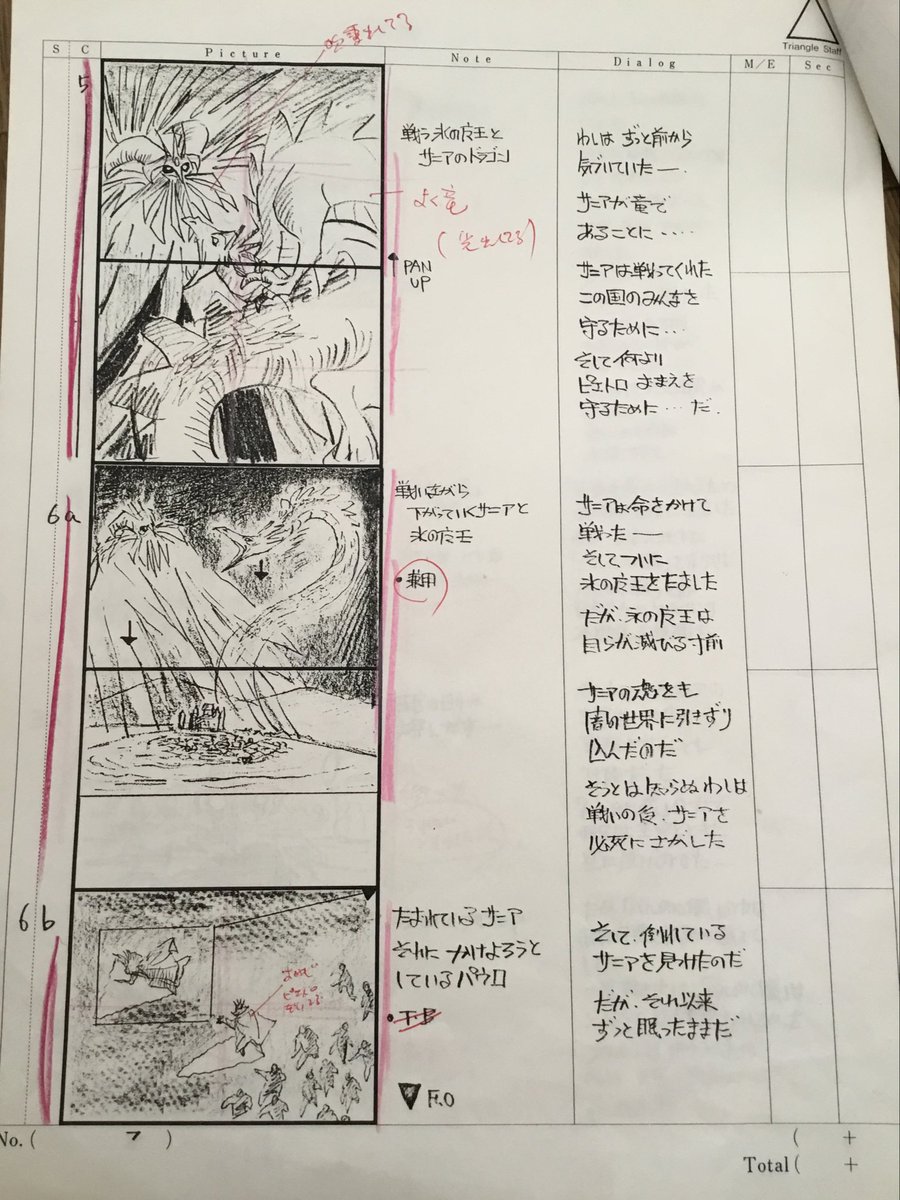 Triangle Staff
S C Picture Note Dialog M/E Sec
5
戦う氷の魔王と
サニアのドラゴン
よく竜
PAN
UP
わしは ずっと前から
気づいていた―.
サニアが竜で
あることに・・・・
サニアは戦ってくれた
この国のみんなを
守るために・・・
そして何より
ピエトロ おまえを
守るために・・・だ.
6a
戦いながら
下がっていくサニアと
氷の魔王
・兼用
サニアは命をかけて
戦った―
そしてついに
氷の魔王をたおした
だが、氷の魔王は
自らが滅びる寸前
サニアの魂をも
闇の世界に引きずり
込んだのだ
そうとは知らぬわしは
戦いの後、サニアを
必死にさがした
6b
たおれているサニア
それに かけよろうと
しているパウロ
▼ F.O
そして、倒れている
サニアを見つけたのだ
だが、それ以来
ずっと眠ったままだ
No. ( 7 )
( +
Total ( +